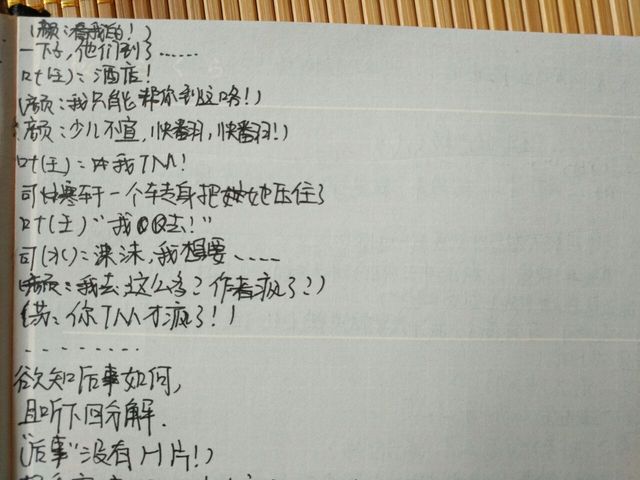 (颜:看我的!)
一下子,他们到了……
叶(主):酒店!
(颜:我只能帮你到这咯!)
(颜:少儿不宜,快翻,快翻!)
叶(主):我TM!
可寒轩一个转身把她压住了
叶(主)"我去!"
可(水):沫沫,我想要……
(颜:我去这么污?作者疯了?)
(若:你TM才疯了!)
………
欲知后事如何,
且听下回分解.
("后事"没有H片!)